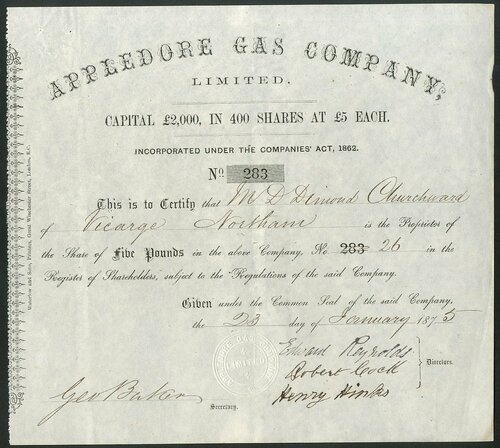 APPLEDORE GAS COMPANY,
LIMITED.
CAPITAL £2,000, IN 400 SHARES AT £5 EACH.
INCORPORATED UNDER THE COMPANIES' ACT, 1862.
No 283
This is to Certify that M D Dimond Churchward
of Vicarge Northam is the Proprietor of
the Share of Five Pounds in the above Company, No. 283 26 in the
Register of Shareholders, subject to the Regulations of the said Company.
Given under the Common Seal of the said Company,
the 23 day of January 1875
Edward Reynolds
Robert Cock
Henry Hinks
Directors.
Geo Baker
Secretary.
Waterlow and Sons, Printers, Great Winchester Street, London, E.C.